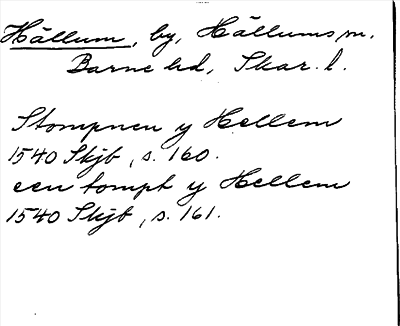 Hällum, by, Hällums sn.
Barne hd, Skar. l.
Stompnen y Hellem
1540 Skjb, s. 160.
een tompt y Hellem
1540 Skjb, s. 161.